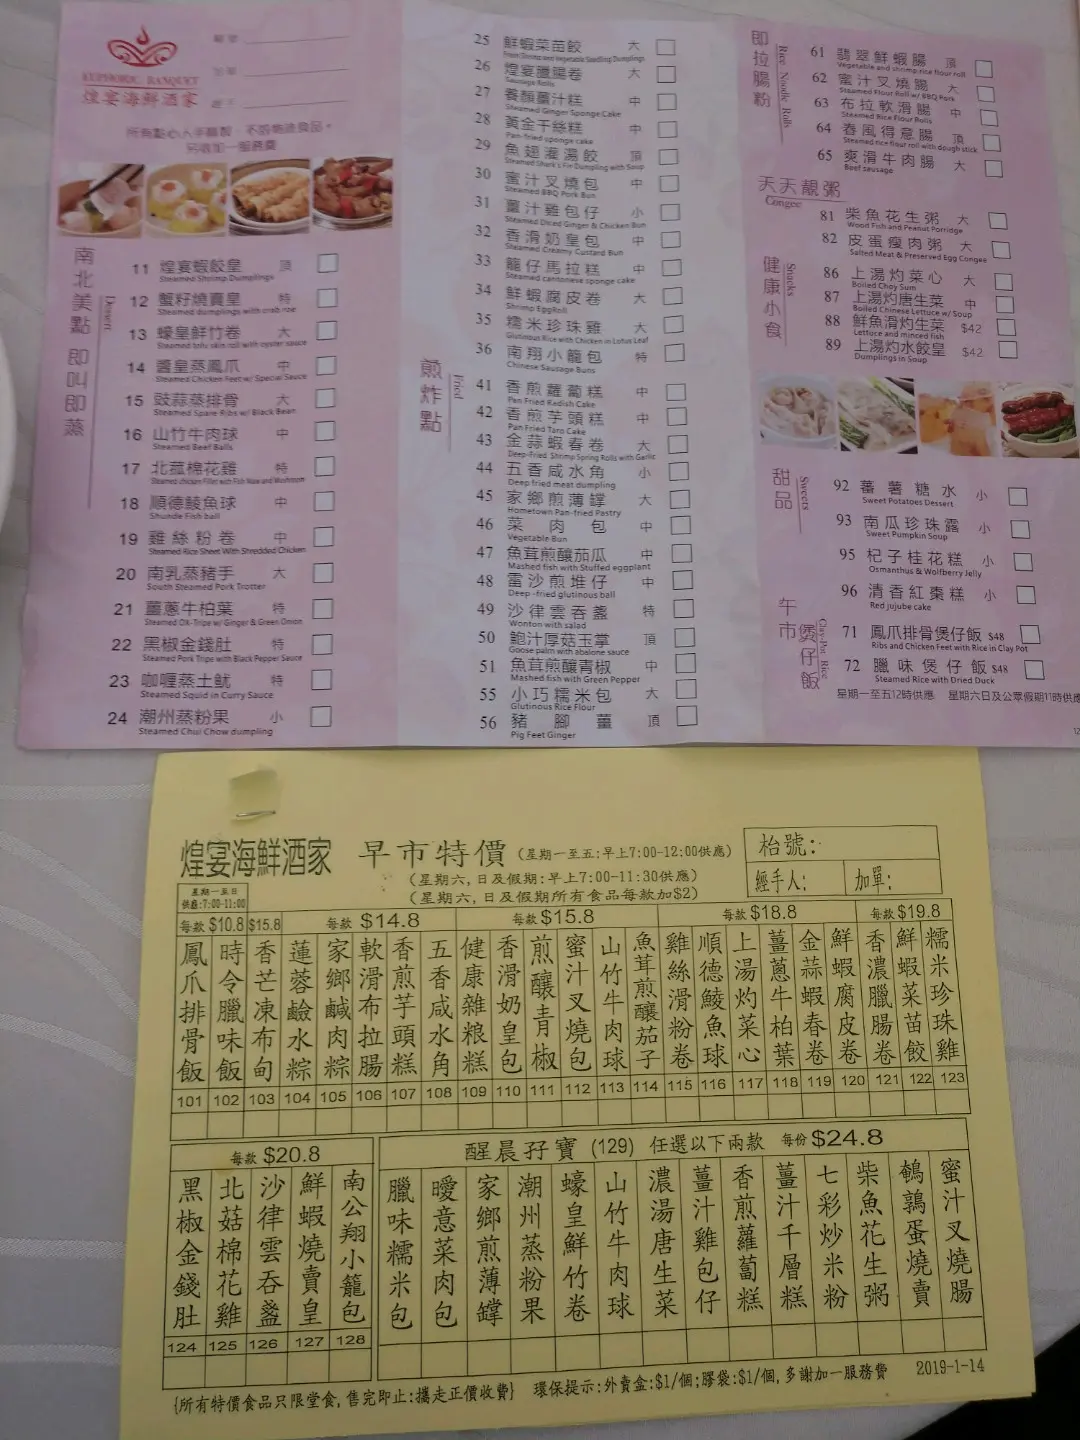 EUPHORIC BANQUET
煌宴海鮮酒家
南北美點 即叫即蒸
Dessert
11 煌宴蝦餃皇 頂
Steamed Shrimp Dumplings
12 蟹籽燒賣皇 特
Steamed dumplings with crab roe
13 蠔皇鮮竹卷 大
Steamed tofu skin roll with oyster sauce
14 醬皇蒸鳳爪 中
Steamed Chicken Feet w/ Special Sauce
15 豉蒜蒸排骨 大
Steamed Spare Ribs w/ Black Bean
16 山竹牛肉球 中
Steamed Beef Balls
17 北菰棉花雞 特
Steamed chicken Fillet with Fish Maw and Mushroom
18 順德鯪魚球 中
Shunde Fish ball
19 雞絲粉卷 中
Steamed Rice Sheet With Shredded Chicken
20 南乳蒸豬手 大
South Steamed Pork Trotter
21 薑蔥牛柏葉 特
Steamed OX-Tripe w/ Ginger & Green Onion
22 黑椒金錢肚 特
Steamed Pork Tripe with Black Pepper Sauce
23 咖喱蒸土魷 特
Steamed Squid in Curry Sauce
24 潮州蒸粉果 小
Steamed Chui Chow dumpling
25 鮮蝦菜苗餃 大
26 煌宴臘腸卷 大
Sausage Rolls
27 養顏薑汁糕 中
Steamed Ginger Sponge Cake
28 黃金千絲糕 中
Pan-fried sponge cake
29 魚翅灌湯餃 頂
Steamed Shark's Fin Dumpling with Soup
30 蜜汁叉燒包 中
Steamed BBQ Pork Bun
31 薑汁雞包仔 小
Steamed Diced Ginger & Chicken Bun
32 香滑奶皇包 中
Steamed Creamy Custard Bun
33 籠仔馬拉糕 中
Steamed cantonese sponge cake
34 鮮蝦腐皮卷 大
Shrimp EggRoll
35 糯米珍珠雞 大
Glutinous Rice with Chicken in Lotus Leaf
36 南翔小籠包 特
Chinese Sausage Buns
煎炸點
Fried
41 香煎蘿蔔糕 中
Pan Fried Radish Cake
42 香煎芋頭糕 中
Pan Fried Taro Cake
43 金蒜蝦春卷 大
Deep-Fried Shrimp Spring Rolls with Garlic
44 五香咸水角 小
Deep fried meat dumpling
45 家鄉煎薄罉 大
Hometown Pan-fried Pastry
46 菜肉包 中
Vegetable Bun
47 魚茸煎釀茄瓜 中
Mashed fish with Stuffed eggplant
48 雷沙煎堆仔 中
Deep-fried glutinous ball
49 沙律雲吞盞 特
Wonton with salad
50 鮑汁厚菇玉掌 頂
Goose palm with abalone sauce
51 魚茸煎釀青椒 中
Mashed fish with Green Pepper
55 小巧糯米包 大
Glutinous Rice Flour
56 豬腳薑 頂
Pig Feet Ginger
即拉腸粉
Rice Noodle Rolls
61 翡翠鮮蝦腸 頂
Vegetable and shrimp rice flour roll
62 蜜汁叉燒腸 大
Steamed Flour Roll w/ BBQ Pork
63 布拉軟滑腸 中
Steamed Rice Flour Rolls
64 春風得意腸 頂
Steamed rice flour roll with dough stick
65 爽滑牛肉腸 大
Beef sausage
天天靚粥
Congee
81 柴魚花生粥 大
Wood Fish and Peanut Porridge
82 皮蛋瘦肉粥 大
Salted Meat & Preserved Egg Congee
健康小食
Snacks
86 上湯灼菜心 大
Boiled Choy Sum
87 上湯灼唐生菜 中
Boiled Chinese Lettuce w/ Soup
88 鮮魚滑灼生菜 $42
Lettuce and minced fish
89 上湯灼水餃皇 $42
Dumplings in Soup
甜品
Sweets
92 蕃薯糖水 小
Sweet Potatoes Dessert
93 南瓜珍珠露 小
Sweet Pumpkin Soup
95 杞子桂花糕 小
Osmanthus & Wolfberry Jelly
96 清香紅棗糕 小
Red jujube cake
午市煲仔飯
Clay-Pot Rice
71 鳳爪排骨煲仔飯 $48
Ribs and Chicken Feet with Rice in Clay Pot
72 臘味煲仔飯 $48
Steamed Rice with Dried Duck
星期一至五12時供應 星期六日及公眾假期11時供應
煌宴海鮮酒家 早市特價 (星期一至五:早上7:00-12:00供應)
(星期六,日及假期:早上7:00-11:30供應)
(星期六,日及假期所有食品每款加$2)
枱號:
經手人: 加單:
星期一至日
供應:7:00-11:00
每款 $10.8 $15.8 每款 $14.8 每款 $15.8 每款 $18.8 每款 $19.8
鳳爪排骨飯 101
時令臘味飯 102
香芒凍布甸 103
蓮蓉鹼水粽 104
家鄉鹹肉粽 105
軟滑布拉腸 106
香煎芋頭糕 107
五香咸水角 108
健康雜粮糕 109
香滑奶皇包 110
煎釀青椒 111
蜜汁叉燒包 112
山竹牛肉球 113
魚茸煎釀茄子 114
雞絲滑粉卷 115
順德鯪魚球 116
上湯灼菜心 117
薑蔥牛柏葉 118
金蒜蝦春卷 119
鮮蝦腐皮卷 120
香濃臘腸卷 121
鮮蝦菜苗餃 122
糯米珍珠雞 123
每款 $20.8
黑椒金錢肚 124
北菇棉花雞 125
沙律雲吞盞 126
鮮蝦燒賣皇 127
南公翔小籠包 128
醒晨孖寶 (129) 任選以下兩款 每份 $24.8
臘味糯米包
曖意菜肉包
家鄉煎薄罉
潮州蒸粉果
蠔皇鮮竹卷
山竹牛肉球
濃湯唐生菜
薑汁雞包仔
香煎蘿蔔糕
薑汁千層糕
七彩炒米粉
柴魚花生粥
鵪鶉蛋燒賣
蜜汁叉燒腸
{所有特價食品只限堂食,售完即止:攜走正價收費} 環保提示:外賣盒:$1/個;膠袋:$1/個,多謝加一服務費 2019-1-14